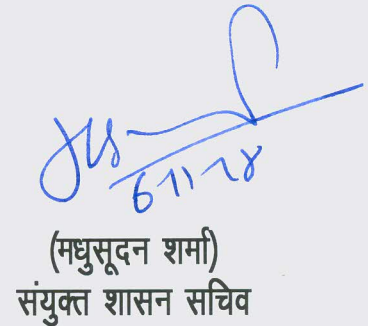 6-11-24
(मधुसूदन शर्मा)
संयुक्त शासन सचिव